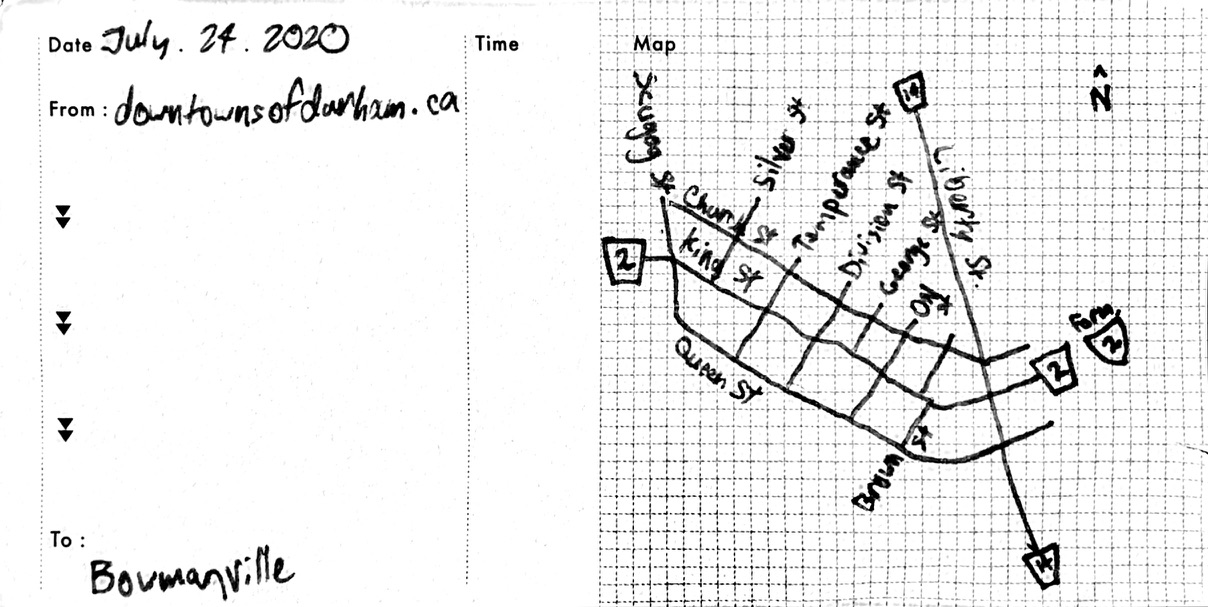 Date July. 24. 2020
Time
From: downtownsofdurham.ca
To:
Bowmanville
Map
N
Scugog St
Silver St
Temperance St
Division St
George St
Ont St
Liberty St.
Church St
King St
Queen St
Brown St
2
2
Form
2
14
14